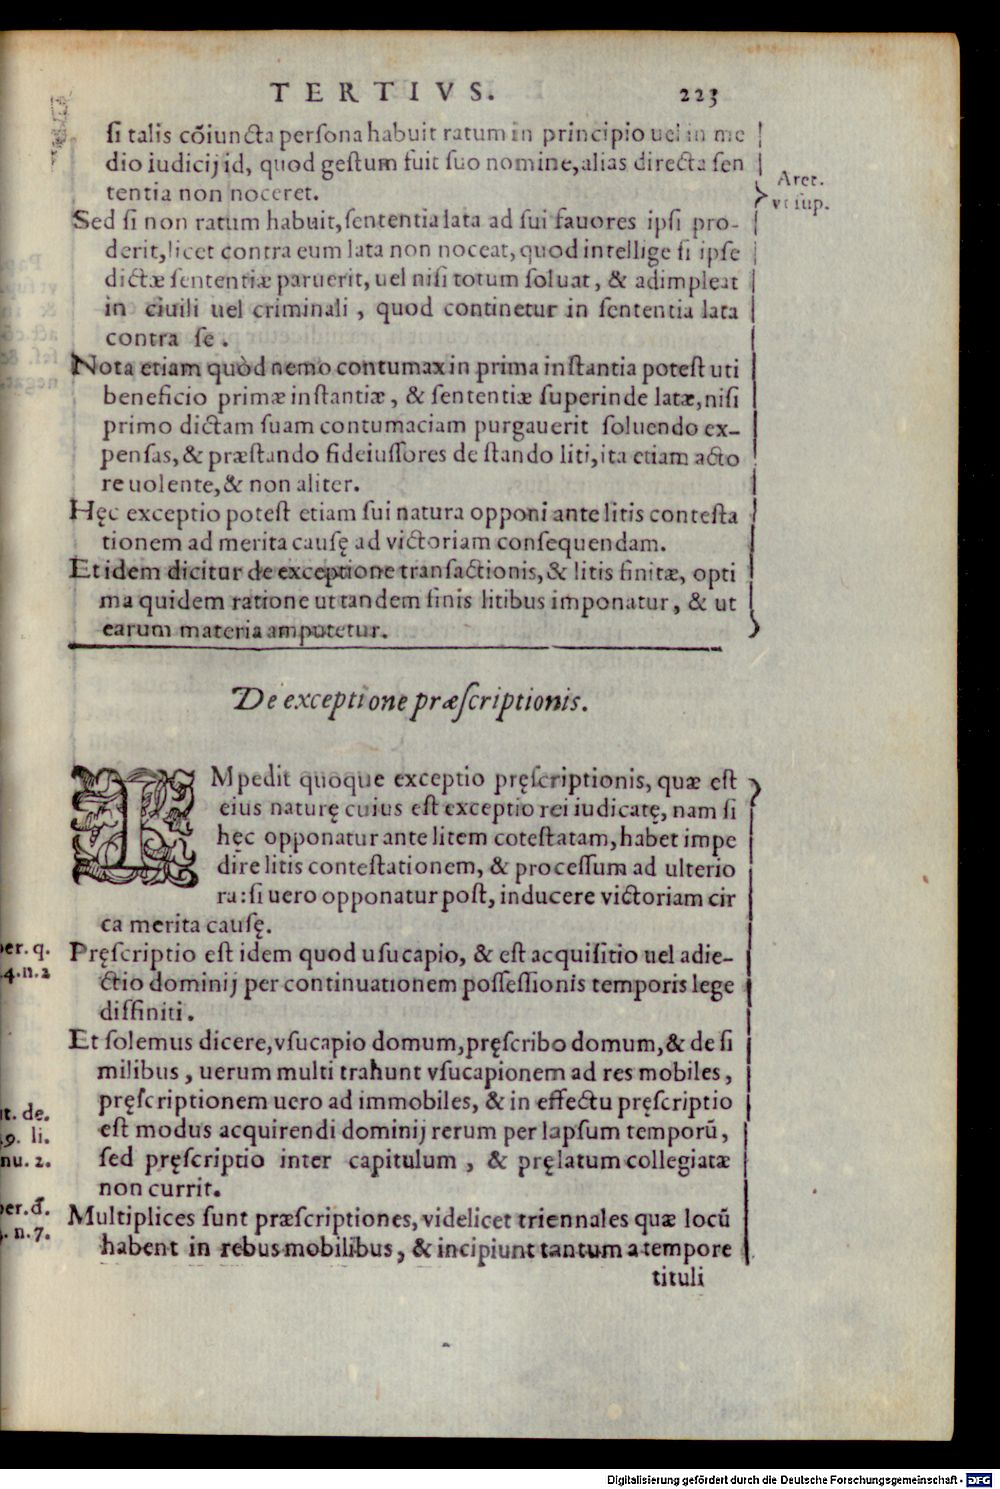 TERTIVS. 223
si talis cõiuncta persona habuit ratum in principio uel in me
dio iudicij id, quod gestum fuit suo nomine, alias directa sen
tentia non noceret.
Aret.
vt sup.
Sed si non ratum habuit, sententia lata ad sui fauores ipsi pro-
derit, licet contra eum lata non noceat, quod intellige si ipse
dictæ sententiæ paruerit, uel nisi totum soluat, & adimpleat
in ciuili uel criminali, quod continetur in sententia lata
contra se.
Nota etiam quòd nemo contumax in prima instantia potest uti
beneficio primæ instantiæ, & sententiæ superinde latæ, nisi
primo dictam suam contumaciam purgauerit soluendo ex-
pensas, & præstando fideiussores de stando liti, ita etiam acto
re uolente, & non aliter.
Hęc exceptio potest etiam sui natura opponi ante litis contesta
tionem ad merita causę ad victoriam consequendam.
Et idem dicitur de exceptione transactionis, & litis finitæ, opti
ma quidem ratione ut tandem finis litibus imponatur, & ut
earum materia amputetur.
De exceptione præscriptionis.
IMpedit quoque exceptio pręscriptionis, quæ est
eius naturę cuius est exceptio rei iudicatę, nam si
hęc opponatur ante litem cotestatam, habet impe
dire litis contestationem, & processum ad ulterio
ra: si uero opponatur post, inducere victoriam cir
ca merita causę.
Pręscriptio est idem quod usucapio, & est acquisitio uel adie-
ctio dominij per continuationem possessionis temporis lege
diffiniti.
Et solemus dicere, vsucapio domum, pręscribo domum, & de si
milibus, uerum multi trahunt vsucapionem ad res mobiles,
pręscriptionem uero ad immobiles, & in effectu pręscriptio
est modus acquirendi dominij rerum per lapsum temporũ,
sed pręscriptio inter capitulum, & pręlatum collegiatæ
non currit.
Multiplices sunt præscriptiones, videlicet triennales quæ locũ
habent in rebus mobilibus, & incipiunt tantum a tempore
tituli
er. q.
4. n. 2
t. de.
9. li.
nu. 2.
er. d̃.
. n. 7.
Digitalisierung gefördert durch die Deutsche Forschungsgemeinschaft - DFG